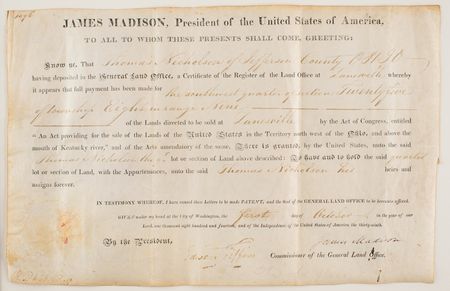 JAMES MADISON, President of the United States of America,
TO ALL TO WHOM THESE PRESENTS SHALL COME, GREETING:
Know ye, That Thomas Nicholson of Jefferson County Ohio
having deposited in the General Land Office, a Certificate of the Register of the Land Office at Zanesville whereby
it appears that full payment has been made for the southwest quarter of section Twenty five
of township Eight in range Nine
of the Lands directed to be sold at Zanesville by the Act of Congress, entitled
"An Act providing for the sale of the Lands of the United States in the Territory north west of the Ohio, and above the
mouth of Kentucky river," and of the Acts amendatory of the same, There is granted, by the United States, unto the said
Thomas Nicholson the quarter lot or section of Land above described: To have and to hold the said quarter
lot or section of Land, with the Appurtenances, unto the said Thomas Nicholson his heirs and
assigns forever.
IN TESTIMONY WHEREOF, I have caused these Letters to be made PATENT, and the Seal of the GENERAL LAND OFFICE to be hereunto affixed.
GIVEN under my hand at the City of Washington, the first day of October in the year of our
Lord one thousand eight hundred and fourteen, and of the Independence of the United States of America the thirty-ninth.
By the President, James Madison
Commissioner of the General Land Office.